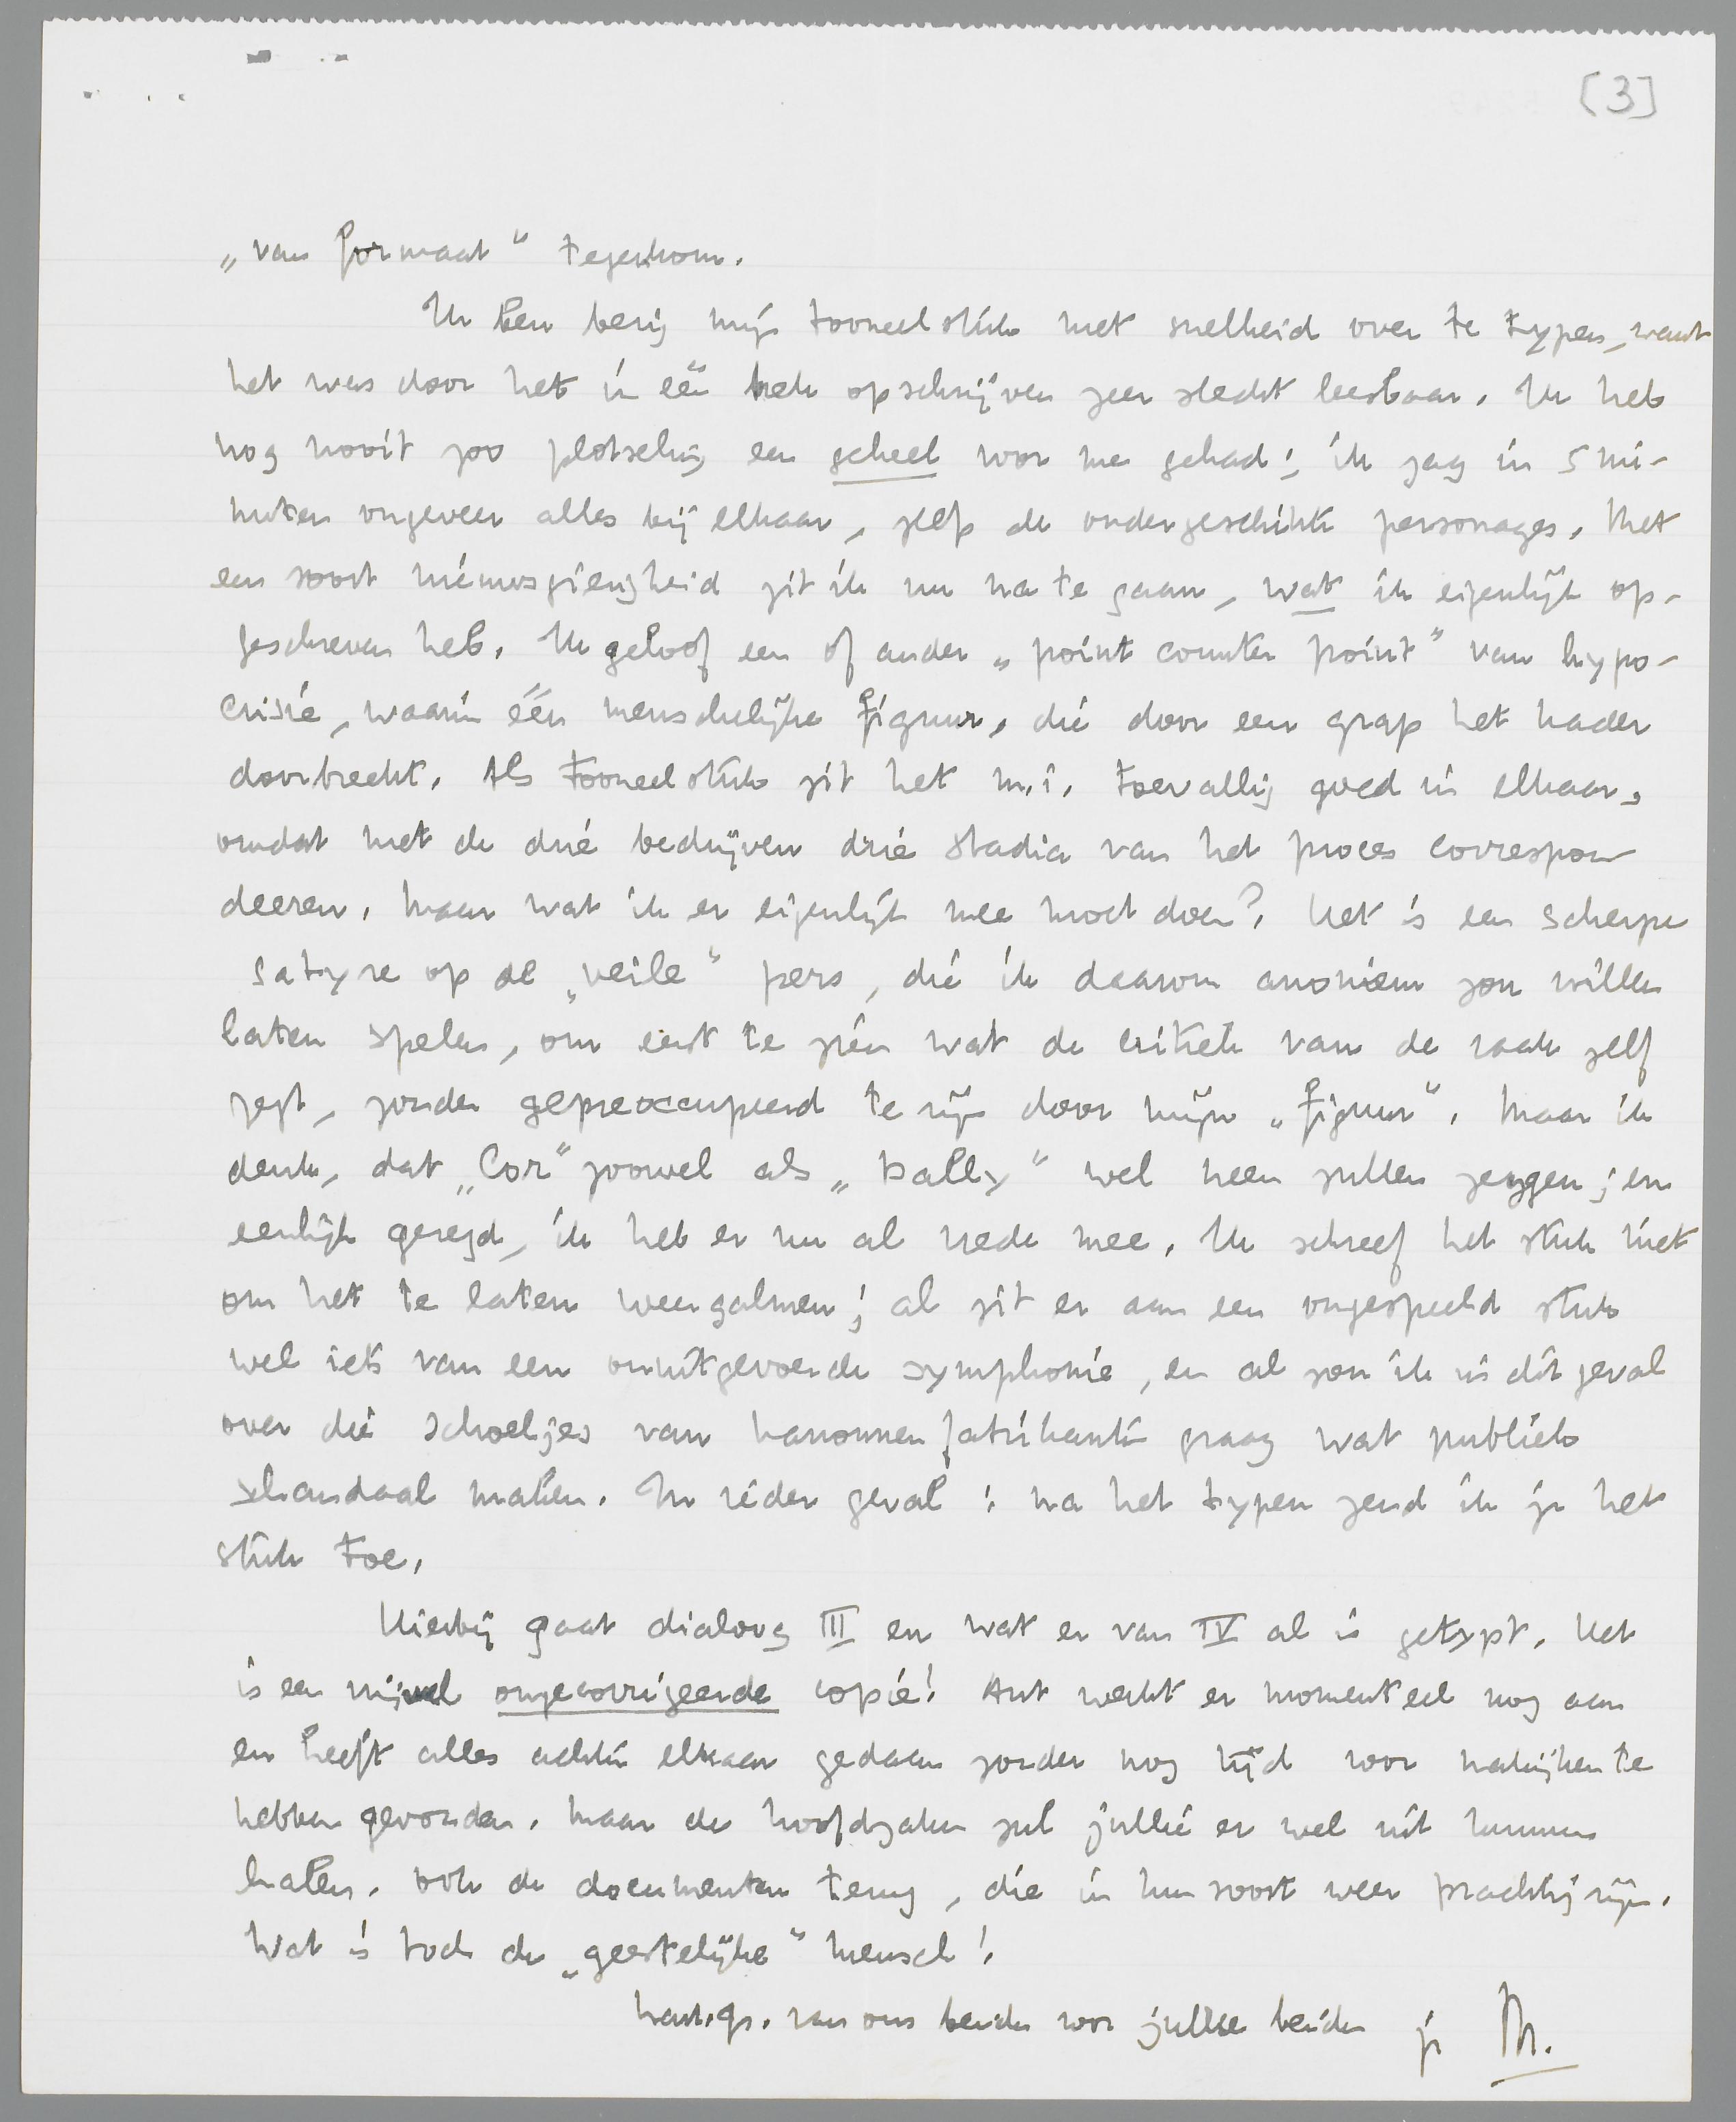 [3]
„van formaat" tegenkom.
Ik ben bezig mijn tooneelstuk met snelheid over te typen, want
het was door het in één ruk opschrijven zeer slecht leesbaar. Ik heb
nog nooit zoo plotseling een geheel voor me gehad; ik zag in 5 mi-
nuten ongeveer alles bij elkaar, zelfs de ondergeschikte personages. Met
een soort nieuwsgierigheid zit ik nu na te gaan, wat ik eigenlijk op-
geschreven heb. Ik geloof een of ander „point counter point" van hypo-
crisie, waarin één menschelijke figuur, die door een grap het kader
doorbreekt. Als tooneelstuk zit het m.i. toevallig goed in elkaar,
omdat met de drie bedrijven drie stadia van het proces correspon-
deeren. Maar wat ik er eigenlijk mee moet doen? Het is een scherpe
satyre op de „veile" pers, die ik daarom anoniem zou willen
laten spelen, om eerst te zien wat de critiek van de zaak zelf
zegt, zonder gepreoccupeerd te zijn door mijn „figuur". Maar ik
denk, dat „Cor" zoowel als „Bally" wel neen zullen zeggen; en
eerlijk gezegd, ik heb er nu al vrede mee. Ik schreef het stuk niet
om het te laten weergalmen; al zit er aan een ongespeeld stuk
wel iets van een onuitgevoerde symphonie, en al zou ik in dit geval
over die schoeljes van kanonnenfabrikanten graag wat publiek
schandaal maken. In ieder geval: na het typen zend ik je het
stuk toe.
Hierbij gaat dialoog III en wat er van IV al is getypt. Het
is een ongecorrigeerde copie! Ant werkt er momenteel nog aan
en heeft alles achter elkaar gedaan zonder nog tijd voor nakijken te
hebben gevonden. Maar de hoofdzaken zul jullie er wel uit kunnen
halen. Ook de documenten terug, die in hun soort weer prachtig zijn.
Wat is toch de „geestelijke" mensch!
hart. gr. van ons beiden voor jullie beiden je M.